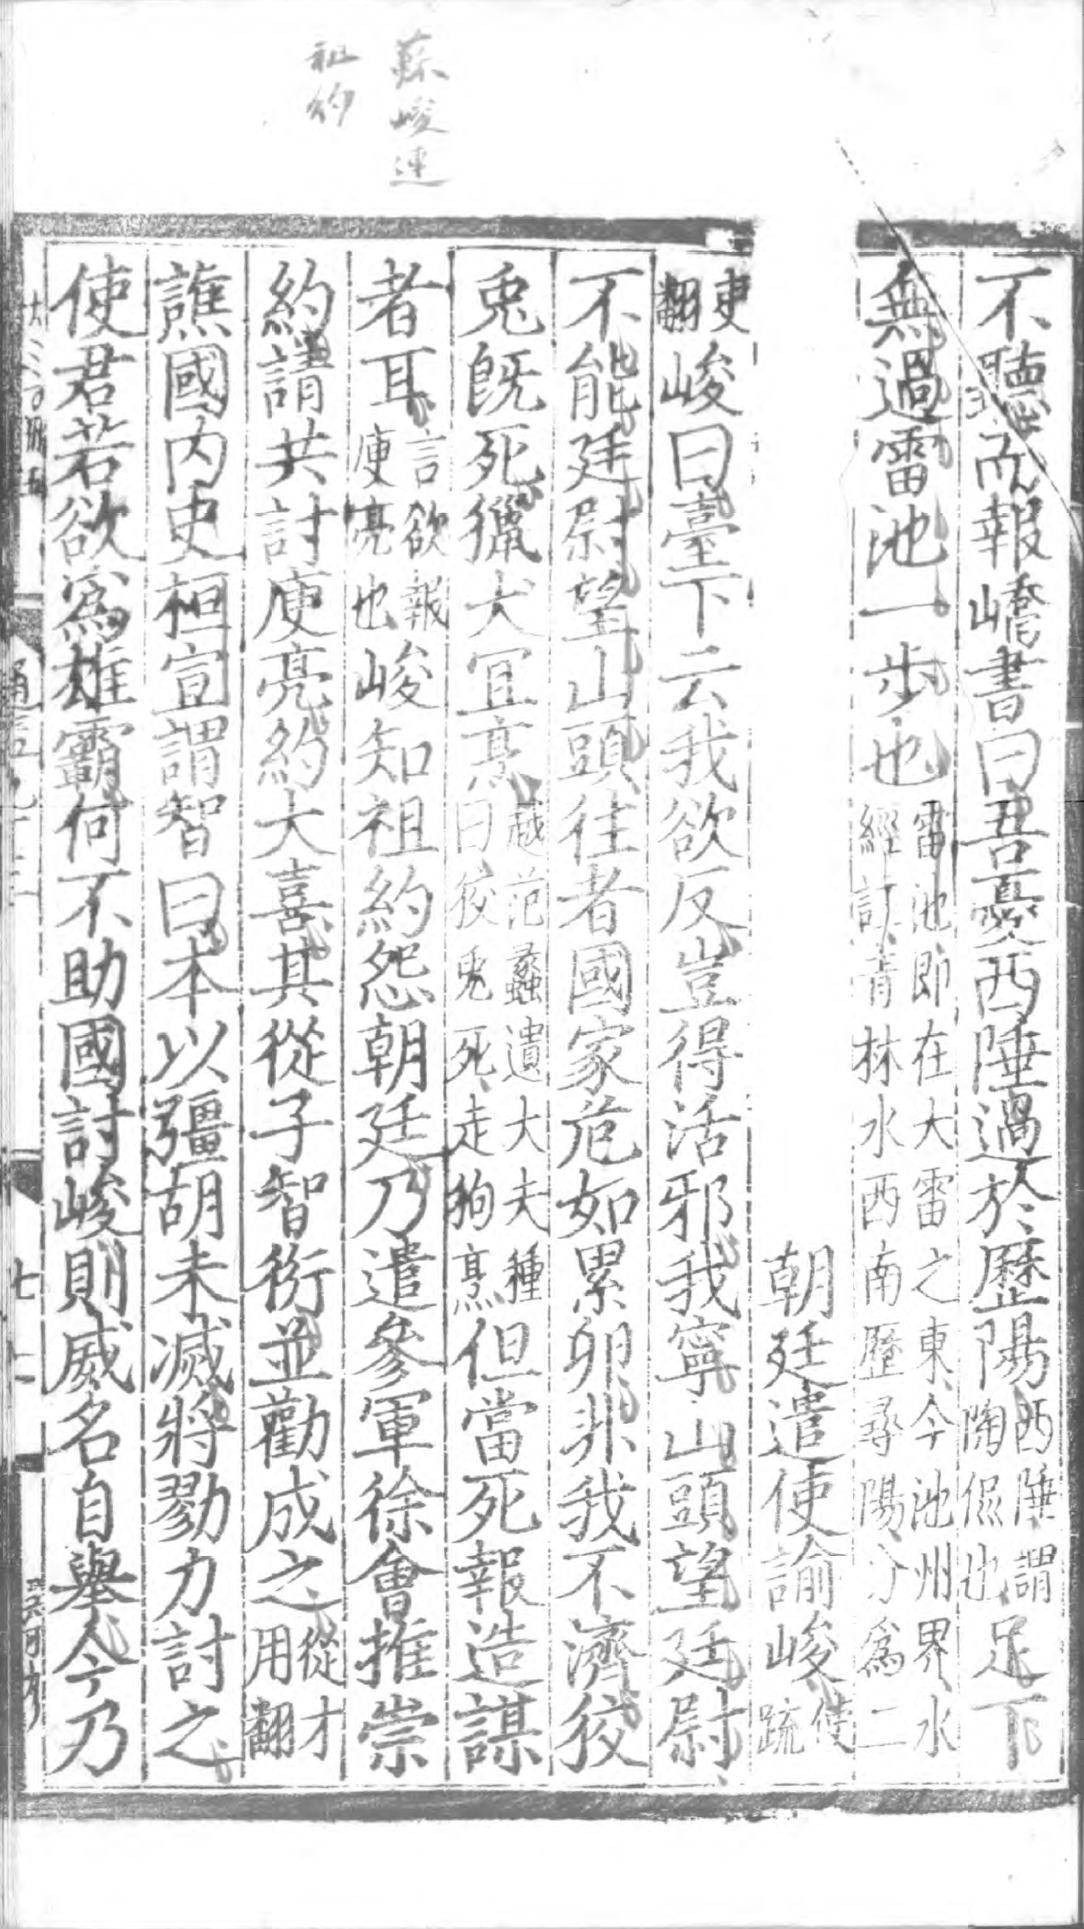 蘇峻連
祖約
不聽而報嶠書曰吾憂西陲過於歷陽西陲謂陶侃也足下
無過雷池一步也雷池即在大雷之東今池州界水經註青林水西南歷尋陽分為二
朝廷遣使諭峻使疏
吏翻峻曰臺下云我欲反豈得活邪我寧山頭望廷尉
不能廷尉望山頭往者國家危如累卵非我不濟狡
兎旣死獵犬宜烹越范蠡遺大夫種曰狡兎死走狗烹但當死報造謀
者耳言欲報庾亮也峻知祖約怨朝廷乃遣參軍徐會推崇
約請共討庾亮約大喜其從子智衍並勸成之從才用翻
譙國内史桓宣謂智曰本以彊胡未滅將勠力討之
使君若欲爲雄霸何不助國討峻則威名自舉今乃